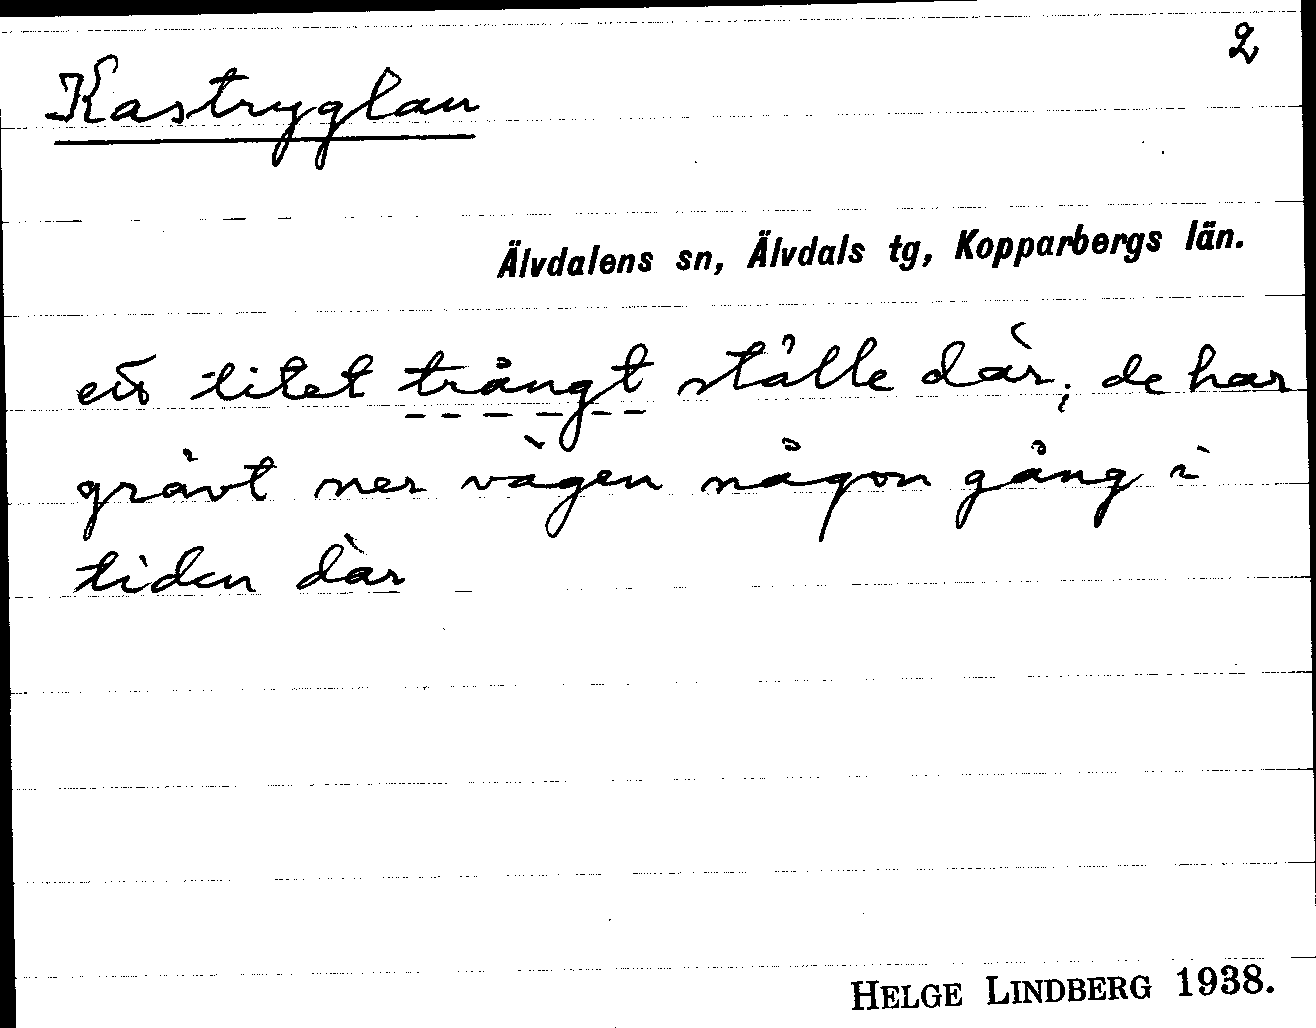 2
Kastryglan
Älvdalens sn, Älvdals tg, Kopparbergs län.
ett litet trångt ställe där; de har
grävt ner vägen någon gång i
tiden där
HELGE LINDBERG 1938.